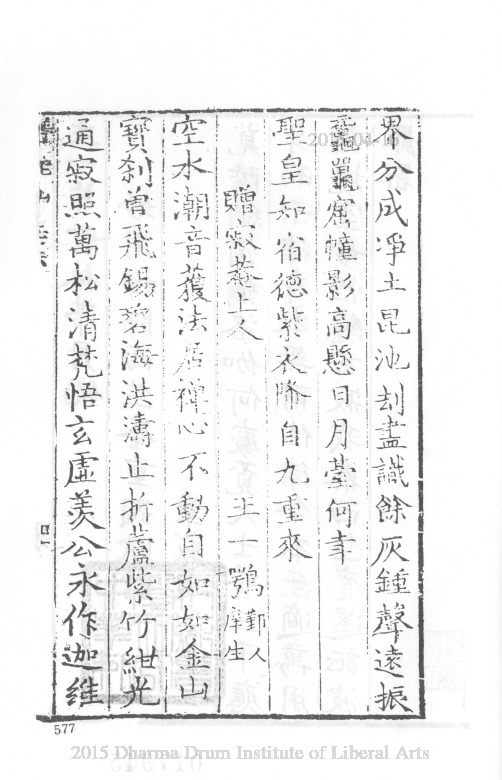 界分成淨土昆池刦盡識餘灰鍾聲遠振
黿鼉窟幢影高懸日月臺何幸
聖皇知宿德紫衣降自九重來
贈寂菴上人
王一鶚鄞人庠生
空水潮音護法居禪心不動自如如金山
寶刹曾飛錫碧海洪濤止折蘆紫竹紺光
通寂照萬松清梵悟玄虛羡公永作迦維
577
2015 Dharma Drum Institute of Liberal Arts